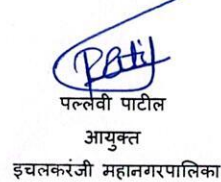 पल्लवी पाटील
आयुक्त
इचलकरंजी महानगरपालिका